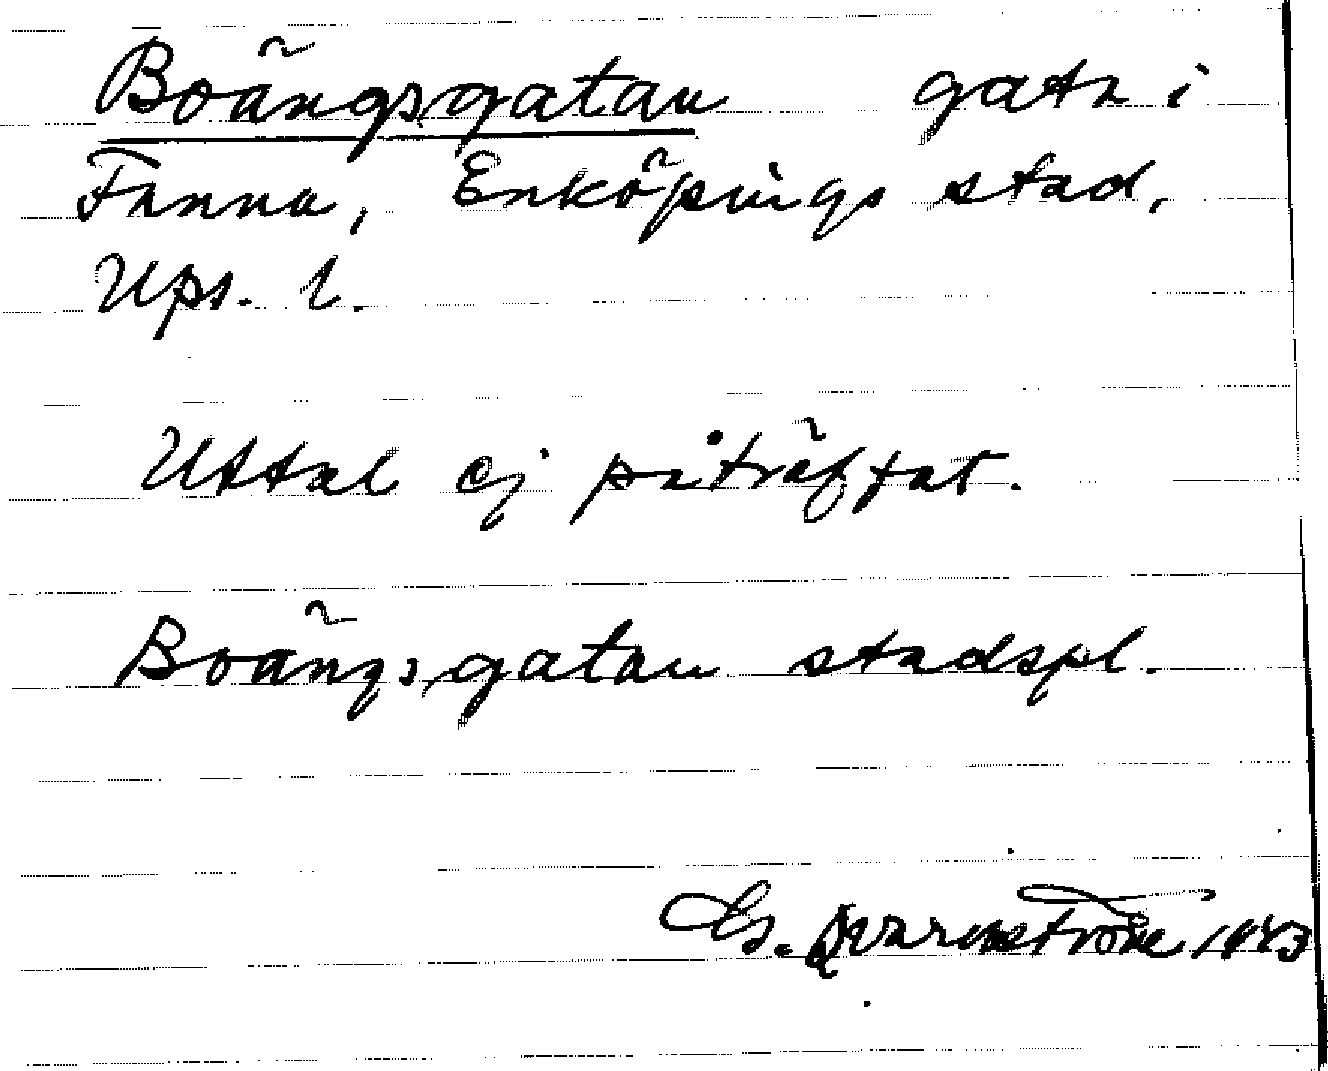 Boängsgatan gata i
Fanna, Enköpings stad,
Ups. l.
Uttal ej påträffat.
Boängsgatan stadspl.
G. Qvarnström 1943